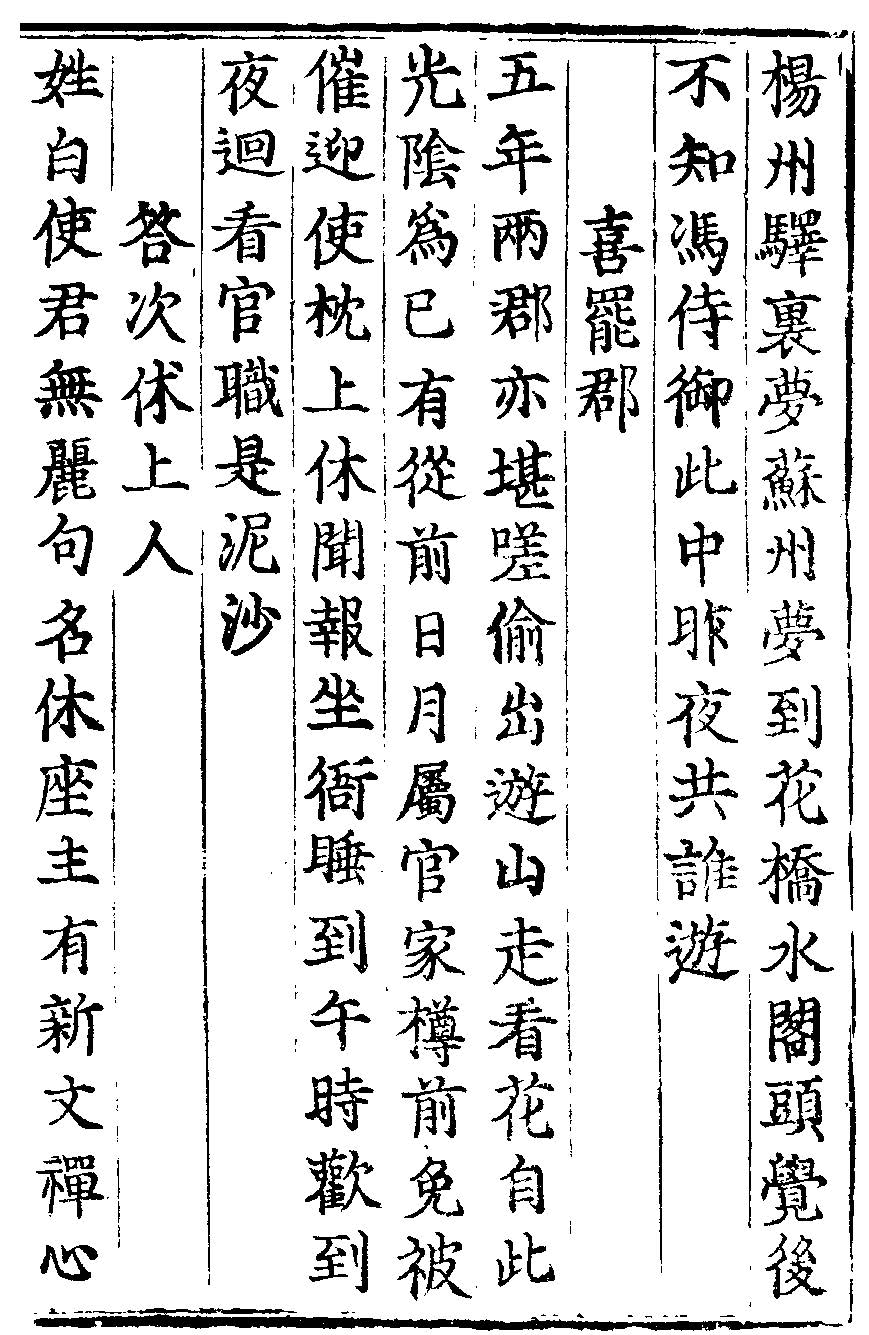 楊州驛裏夢蘇州夢到花橋水閣頭覺後
不知馮侍御此中昨夜共誰遊
喜罷郡
五年兩郡亦堪嗟偷出遊山走看花自此
光陰爲已有從前日月屬官家樽前免被
催迎使枕上休聞報坐衙睡到午時歡到
夜迴看官職是泥沙
答次休上人
姓白使君無麗句名休座主有新文禪心